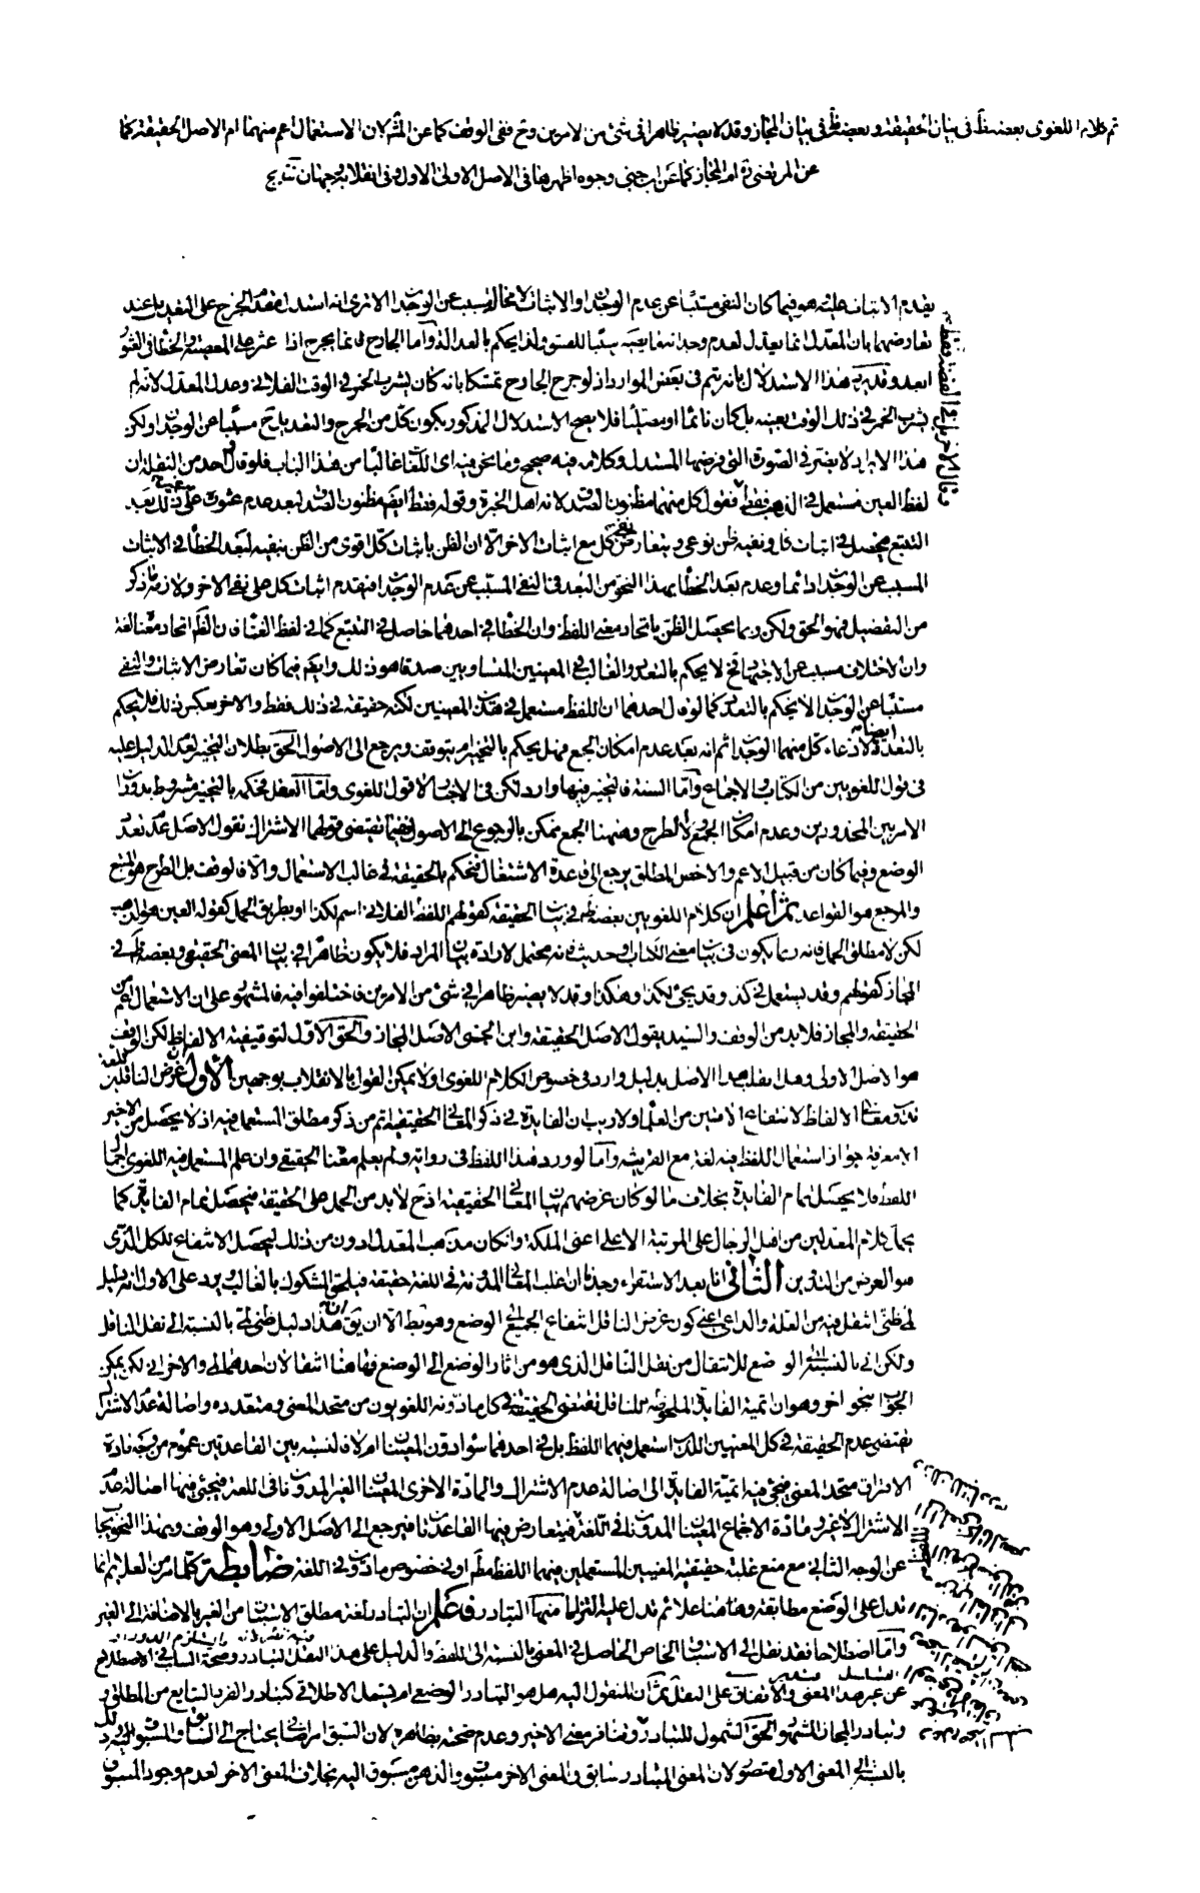 ثم كلام اللغوى بعضه ظ فى بيان الحقيقة وبعضه ظ فى بيان المجاز وقد لا يصير ظاهرا فى شئ من الامرين وح ففى الوقف كما عن المش لان الاستعمال اعم منهما ام الاصل الحقيقة كما
عن المرتضى ره ام المجاز كما عن ابن جنى وجوه اظهرها فى الاصل الاولى الاول وفى انقلابه وجهان
يقدم الاثبات عليه هو فيما كان النفى مسببا عن عدم الوجدان والاثبات لا محالة مسبب عن الوجدان الا ترى انه استدل مقدم الجرح على التعديل عند
تعارضهما بان المعدل انما يعدل لعدم وجدانه ما يصير سببا للفسق ولذا يحكم بالعدالة واما الجارح فانما يجرح اذا عثر على المعصية والخطا فى العثور
ابعد وقد يرد هذا الاستدلال بانه يتم فى بعض الموارد اذ لو جرح الجارح تمسكا بانه كان يشرب الخمر فى الوقت الفلانى وعدل المعدل لانه لم
يشرب الخمر فى ذلك الوقت بعينه بل كان نائما او مصليا فلا يصح الاستدلال المذكور بكون كل من الجرح والتعديل ح مسببا عن الوجدان ولكن
هذا الايراد لا يعتبر فى الصورة التى فرضها المستدل وكلامه فيه صحيح وما نحن فيه اى اللغة غالبا من هذا الباب فلو قال احد من النقلة ان
لفظ العين مستعمل فى الذهب فقط فنقول كل منهما مظنون الصدق لانه اهل الخبرة وقوله فقط ايضا مظنون الصدق لبعد عدم عثوره على ذلك بعد
التتبع فيحصل فى اثبات كل ونفيه ظن نوعى ويتعارض نفى كل مع اثبات الاخر الا ان الظن باثبات كل اقوى من الظن بنفيه لبعد الخطا فى الاثبات
المسبب عن الوجدان دائما وعدم بعد الخطا بهذا النحو من البعد فى النفى المسبب عن عدم الوجدان فيقدم اثبات كل على نفى الاخر ولازم ما ذكر
من التفصيل فهو الحق ولكن ربما يحصل الظن باتحاد معنى اللفظ وان الخطا فى احدهما حاصل فى التتبع كما فى لفظ الغناء فان الظ اتحاد معناه لغة
وان الاختلاف مسبب عن الاجتهاد فح لا يحكم بالتعدد والغالب فى المعنيين المتساويين صدقا هو ذلك وايضا فيما كان تعارض الاثبات والنفى
مسببا عن الوجدان لا يحكم بالتعدد كما لو قال احدهما ان اللفظ مستعمل فى هذين المعنيين لكنه حقيقة فى ذلك فقط والاخر بعكس ذلك فلا يحكم
بالتعدد لادعاء كل منهما الوجدان ثم انه بعد عدم امكان الجمع فهل يحكم بالتخيير ام يتوقف ويرجع الى الاصول الحق بطلان التخيير لعدم الدليل عليه
فى قول اللغويين من الكتاب والاجماع واما السنة فالتخيير فيها وارد لكن فى الاخبار لا قول اللغوى واما العقل فحكمه بالتخيير مشروط بدوران
الامر بين المحذورين وعدم امكان الجمع والطرح وههنا الجمع ممكن بالرجوع الى الاصول فيما يقتضى قولهما الاشتراك نقول الاصل عدم تعدد
الوضع وفيما كان من قبيل الاعم والاخص المطلق يرجع الى قاعدة الاشتغال فنحكم بالحقيقة فى غالب الاستعمال والا فالوقف بل الطرح هو المتبع
والمرجع هو القواعد ثم اعلم ان كلام اللغويين بعضه ظ فى بيان الحقيقة كقولهم اللفظ الفلانى اسم لكذا او بطريق الحمل كقوله العين هو الذهب
لكن لا مطلق الحمل فانه ربما يكون فى بيان معنى الكتاب او حديث فانه محتمل لارادة بيان المراد فلا يكون ظاهرا فى بيان المعنى الحقيقى وبعضه ظ فى
المجاز كقولهم وقد يستعمل فى كذا وقد يجئ لكذا وهكذا وقد لا يصير ظاهرا فى شئ من الامرين فاختلفوا فيه فالمشهور على ان الاستعمال اعم من
الحقيقة والمجاز فلا بد من الوقف والسيد يقول الاصل الحقيقة وابن الجنى الاصل المجاز والحق الاول لتوقيفية الالفاظ لكن الوقف
هو الاصل الاولى وهل انقلب هذا الاصل بدليل وارد فى خصوص الكلام اللغوى اولا يمكن القول بالانقلاب بوجهين الاول ان غرض الناقلين للغة
معانى الالفاظ لانتفاع الاخرين من العلماء ولا ريب ان الفايدة فى ذكر المعانى الحقيقية اتم من ذكر مطلق المستعمل فيه اذ لا يحصل من الاخير
الا معرفة جواز استعمال اللفظ فيه لغة مع القرينة واما لو ورد هذا اللفظ فى رواية ولم يعلم معناه الحقيقى وان علم المستعمل فيه اللغوى اجمال
اللفظ فلا يحصل تمام الفايدة بخلاف ما لو كان غرضهم بيان المعانى الحقيقية اذ ح لا بد من الحمل على الحقيقة فيحصل تمام الفايدة كما
يحمل كلام المعدلين من اهل الرجال على المرتبة الاعلى اعنى الملكة وان كان مذهب المعدل ادون من ذلك ليحصل الانتفاع للكل الذى
هو الغرض من التدوين الثانى انا بعد الاستقراء وجدنا ان غلب المعانى المدونة فى اللغة حقيقة فيلحق المشكوك بالغالب ويرد على الاول انه دليل
لمى ظنى انتقل فيه من العلة والداعى اعنى كون غرض الناقل انتفاع الجميع الى الوضع وهو بط الا ان يق ان هذا دليل ظنى لمى بالنسبة الى نقل الناقل
ولكن انى بالنسبة الى الوضع للانتقال من نقل الناقل الذى هو من اثار الوضع الى الوضع فهاهنا انتقالان احدهما لمى والاخر انى لكن يمكن
الجواب بنحو اخر وهو ان اتمية الفايدة الملحوظة للناقل تقتضى الحقيقة فى كل ما دونه اللغويون من متحد المعنى ومتعدده واصالة عدم الاشتراك
تقتضى عدم الحقيقة فى كل المعنيين اللذين استعمل فيهما اللفظ بل فى احدهما سواء دون المعنيان ام لا فالنسبة بين القاعدتين عموم من وجه فمادة
الافتراق متحد المعنى فيجئ فيه اتمية الفايدة لا اصالة عدم الاشتراك والمادة الاخرى المعنيان الغير المدونان فى اللغة فيجئ فيها اصالة عدم
الاشتراك لا غير ومادة الاجتماع المعنيان المدونان فى اللغة فيتعارض فيها القاعدتان فيرجع الى الاصل الاولى وهو الوقف وبهذا النحو يجاب
عن الوجه الثانى مع منع غلبة حقيقية المعنيين المستعملين فيهما اللفظ مطلقا او فى خصوص ما دون فى اللغة ضابطة كلما مر من العلائم انما
تدل على الوضع مطابقة وهاهنا علائم تدل عليه التزاما منها التبادر فاعلم ان التبادر لغة مطلق الاستباق من الغير بالاضافة الى الغير
واما اصطلاحا فقد نقل الى الاستباق الخاص الحاصل فى المعنى بالنسبة الى اللفظ والدليل على هذا النقل تبادر وصحة السلب فى الاصطلاح
عن غير هذا المعنى والاتفاق على النقل ثم ان المنقول اليه هل هو التبادر الوضعى ام يشمل الاطلاقى كتبادر الفرد الشايع من المطلق و
تبادر المجاز المشهور الحق الشمول للتبادر وتنافر معنى الاخير وعدم صحته بظاهره لان السبق امر اضافى يحتاج الى السابق والمسبوق اليه
بالنسبة الى المعنى الاول متصور لان المعنى المتبادر سابق والمعنى الاخر مسبوق والذهن مسبوق اليه بخلاف المعنى الاخر لعدم وجود المسبوق